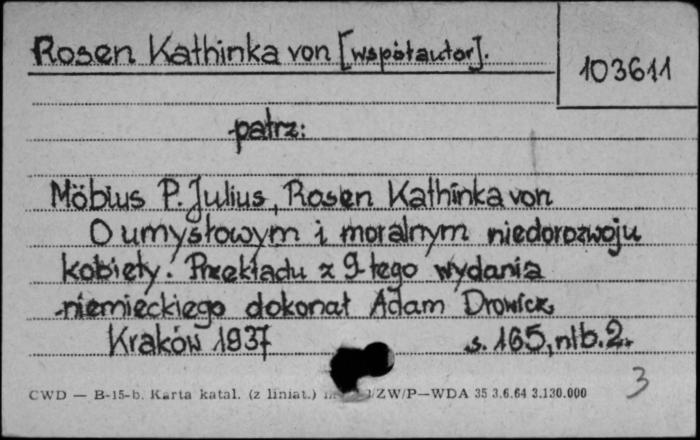 Rosen Kathinka von [współautor].
103611
patrz:
Möbius P. Julius, Rosen Kathinka von
O umysłowym i moralnym niedorozwoju
kobiety. Przekładu z 9-tego wydania
niemieckiego dokonał Adam Drowicz
Kraków 1937 s. 165, nlb. 2.
3
CWD — B-15-b. Karta katal. (z liniat.) /ZW/P—WDA 35 3.6.64 3.130.000